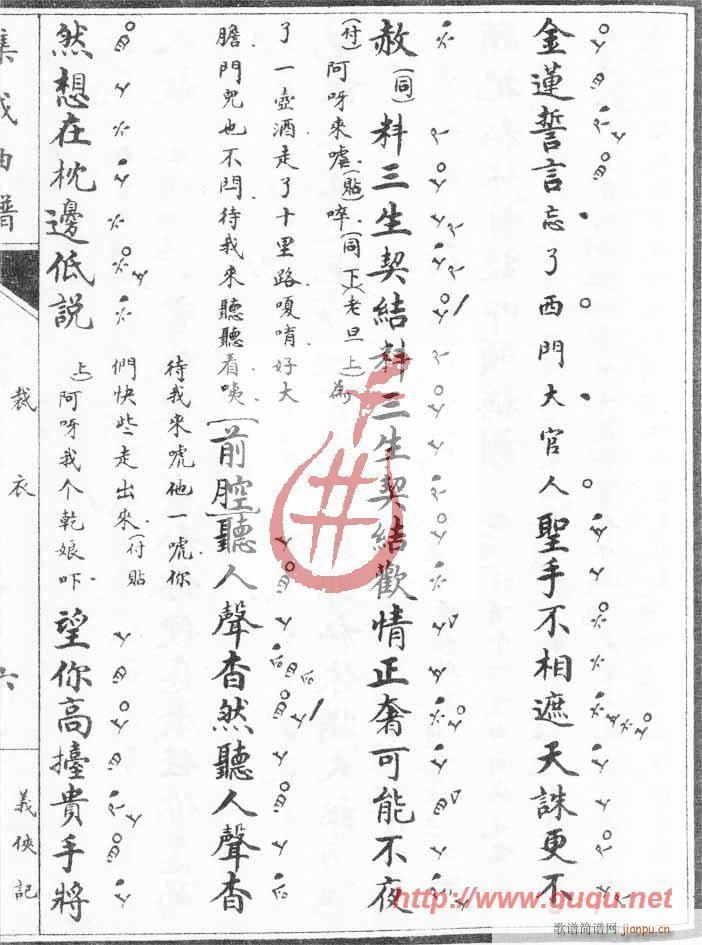 金蓮誓言忘了西門大官人聖手不相遮天誅更不
赦(同)料三生契結料三生契結歡情正奢可能不夜
(付)阿呀來嘘(貼)啐(同下)(老旦上)為
了一壺酒走了十里路嗄唷好大
膽門兒也不閂待我來聽聽看咦(前腔)聽人聲杳然聽人聲杳
待我來唬他一唬你
們快些走出來(付貼
上)阿呀我个乾娘吓望你高擡貴手將
然想在枕邊低説
集成曲譜
裁衣
六
義俠記
http://www.guqu.net
歌谱简谱网 jianpu.cn